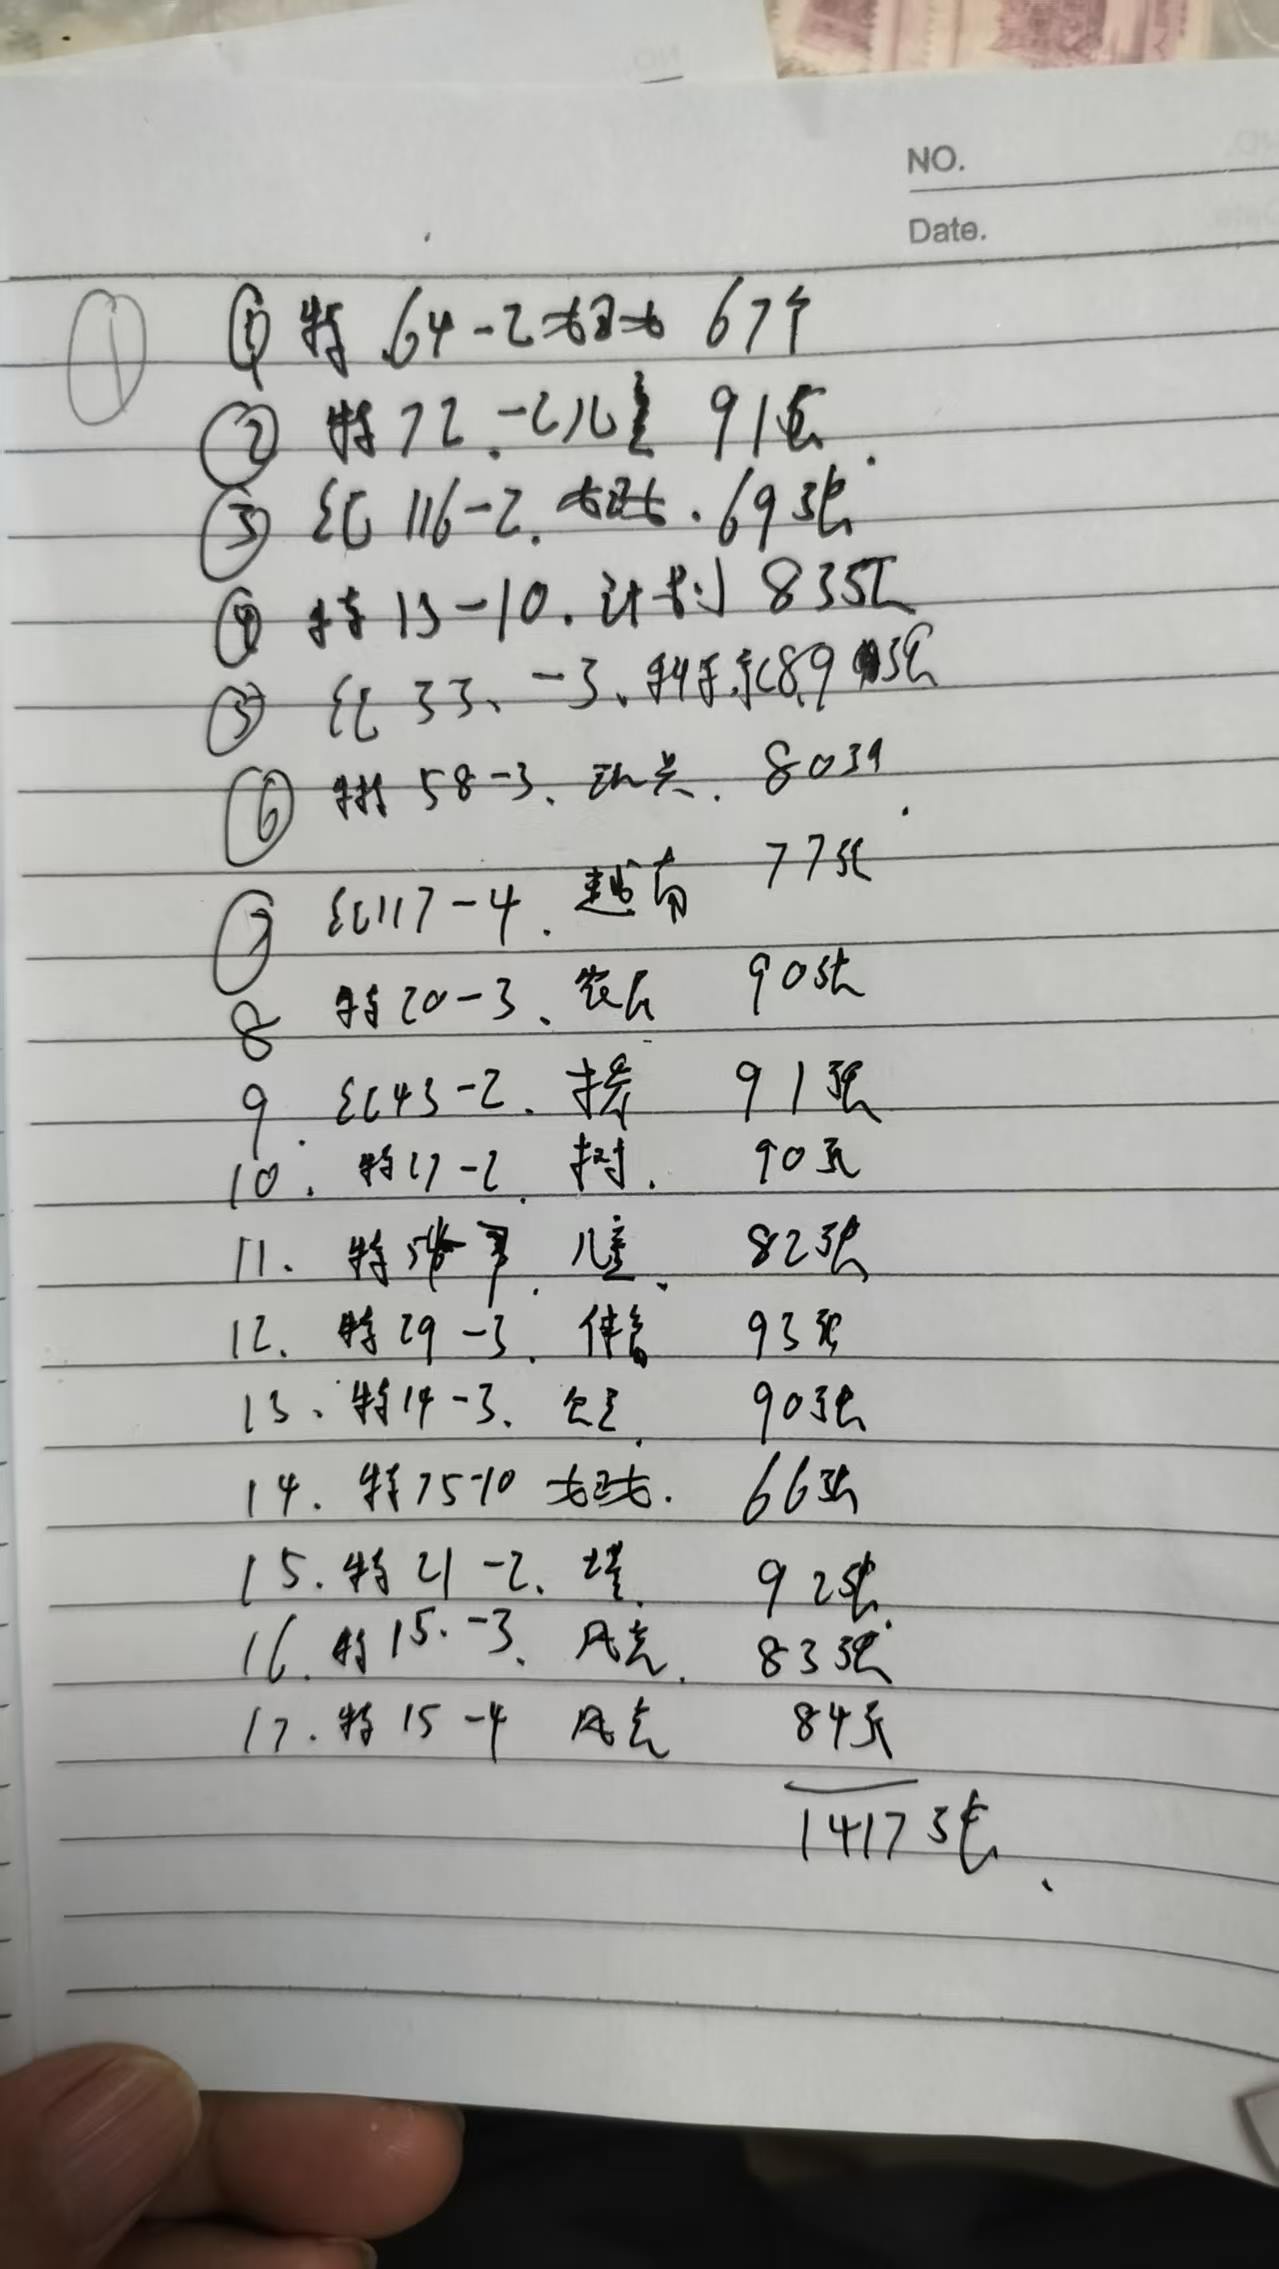 NO.
Date.
①
① 特 64-2 67个
② 特72.-2儿童 91张.
③ 纪116-2. 69张
④ 特13-10. 计划 83张
⑤ 纪33、-3、科学家89张
⑥ 特58-3、 80张.
⑦ 纪117-4. 越南 77张
8 特20-3、农民 90张
9. 纪43-2. 91张
10. 特27-2. 树. 90张
11. 特54 儿童、 82张
12. 特29-3. 体育 93张
13. 特14-3. 90张
14. 特75-10 66张
15. 特21-2. 92张.
16. 特15.-3、风光. 83张
17. 特15-4 风光 84张
1417张、